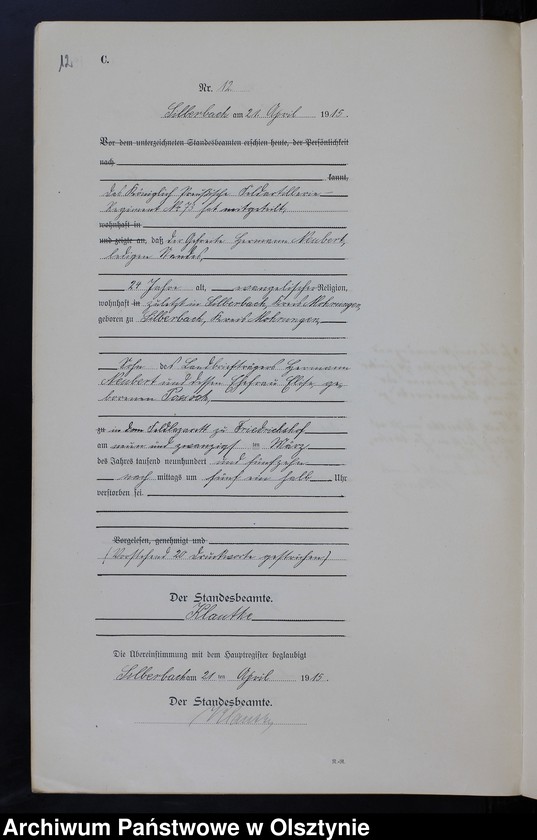 12.
C.
Nr. 12
Silberbach am 21. April 1915.
Vor dem unterzeichneten Standesbeamten erschien heute, der Persönlichkeit
nach
kannt,
Das Königlich Preußische Feldartillerie-
Regiment No 73 hat mitgeteilt,
wohnhaft in
und zeigte an, daß der Gefreite Hermann Neubert,
ledigen Standes,
24 Jahre alt, evangelischer Religion,
wohnhaft in zuletzt in Silberbach, Kreis Mohrungen,
geboren zu Silberbach, Kreis Mohrungen,
Sohn des Landbriefträgers Hermann
Neubert und dessen Ehefrau Elise, ge-
borenen
zu in dem Feldlazarett zu Friedrichshof
am neun und zwanzigsten März
des Jahres tausend neunhundert und fünfzehn
nach mittags um fünf ein halb Uhr
verstorben sei.
Vorgelesen, genehmigt und
(Vorstehend 20 Druckworte gestrichen)
Der Standesbeamte.
Klauthe
Die Übereinstimmung mit dem Hauptregister beglaubigt
Silberbach am 21 ten April 1915.
Der Standesbeamte.
Klauthe
Archiwum Państwowe w Olsztynie